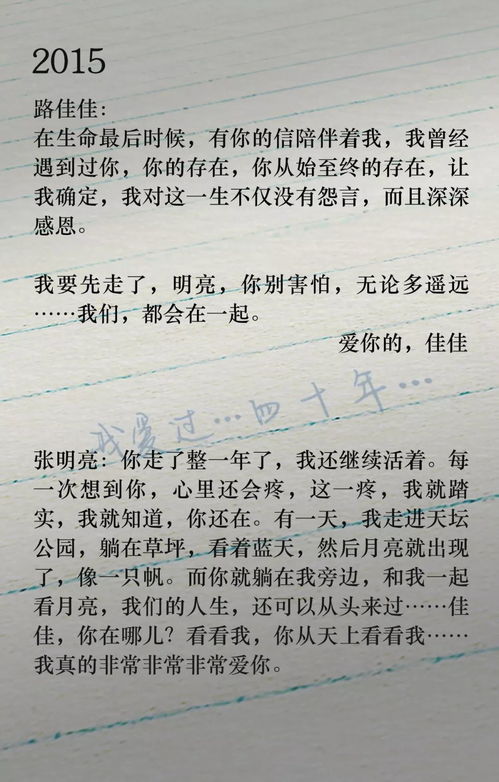 2015
路佳佳：
在生命最后时候，有你的信陪伴着我，我曾经
遇到过你，你的存在，你从始至终的存在，让
我确定，我对这一生不仅没有怨言，而且深深
感恩。
我要先走了，明亮，你别害怕，无论多遥远
……我们，都会在一起。
爱你的，佳佳
我爱过…四十年…
张明亮：你走了整一年了，我还继续活着。每
一次想到你，心里还会疼，这一疼，我就踏
实，我就知道，你还在。有一天，我走进天坛
公园，躺在草坪，看着蓝天，然后月亮就出现
了，像一只帆。而你就躺在我旁边，和我一起
看月亮，我们的人生，还可以从头来过……佳
佳，你在哪儿？看看我，你从天上看看我……
我真的非常非常非常爱你。